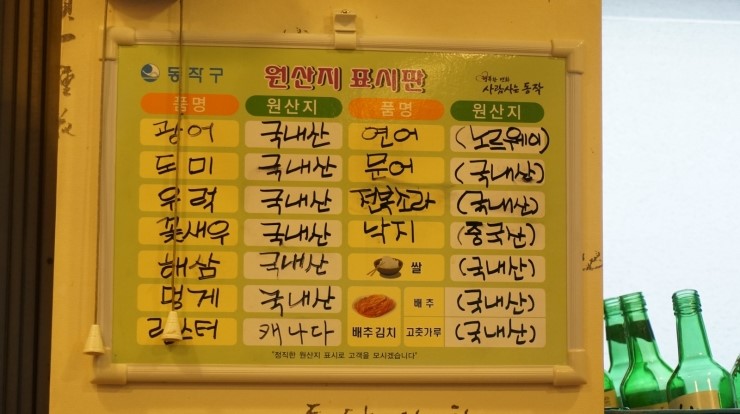 동작구 원산지 표시판 사람사는 동작
품명 원산지 품명 원산지
광어 국내산 연어 (노르웨이)
도미 국내산 문어 (국내산)
우럭 국내산 전복소라 (국내산)
꽃새우 국내산 낙지 (중국산)
해삼 국내산 쌀 (국내산)
멍게 국내산 배추 (국내산)
라스터 캐나다 배추김치 고춧가루 (국내산)
"정직한 원산지 표시로 고객을 모시겠습니다"